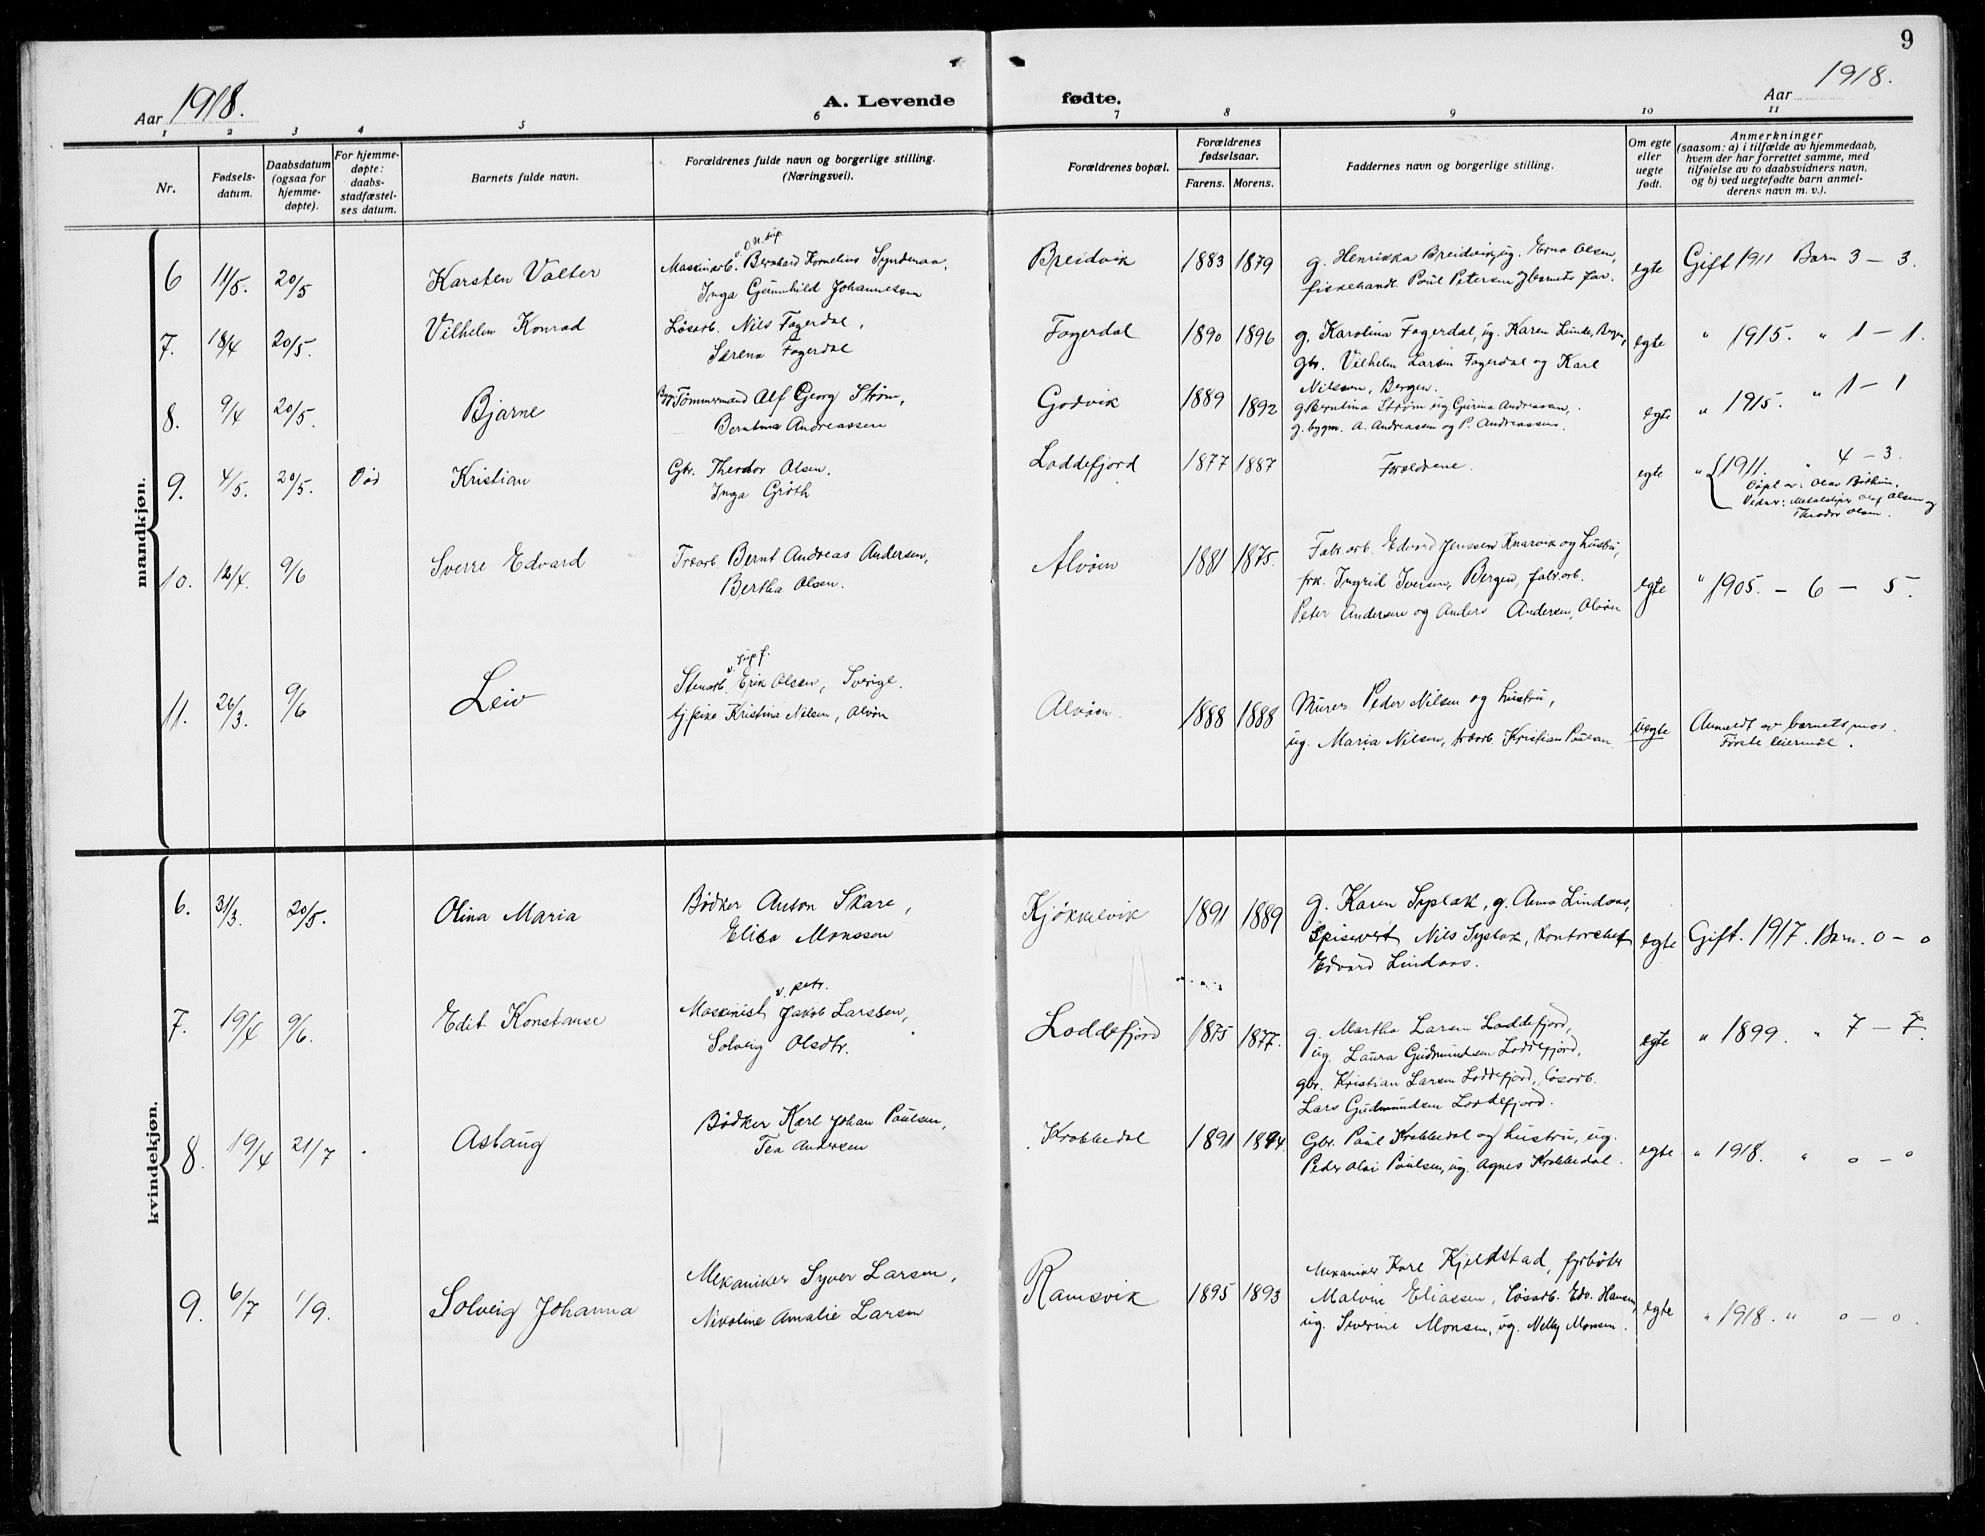 9
Aar 1918.
A. Levende fødte.
Aar 1918.
1 2 3 4 5 6 7 8 9 10 11
Nr.
Fødsels-
datum.
Daabsdatum
(ogsaa for
hjemme-
døpte).
For hjemme-
døpte:
daabs-
stadfæstel-
ses datum.
Barnets fulde navn.
Forældrenes fulde navn og borgerlige stilling.
(Næringsvei).
Forældrenes bopæl.
Forældrenes
fødselsaar.
Farens. Morens.
Faddernes navn og borgerlige stilling.
Om egte
eller
uegte
født.
Anmerkninger
(saasom: a) i tilfælde av hjemmedaab,
hvem der har forrettet samme, med
tilføielse av to daabsvidners navn,
og b) ved uegtefødte barn anmel-
derens navn m. v.).
mandkjøn.
6 11/5. 20/5 Karsten Valter
Maskinarb. Bernhard Kornelius
Inga Gunnhild Johannesen
Breidvik 1883 1879
g. Henrikka Breidvik, ug. Erna Olsen,
fiskehandl. Paul Petersen
egte Gift 1911 Barn 3 – 3.
7. 18/4 20/5. Vilhelm Konrad
Løsarb. Nils Fagerdal,
Serena Fagerdal
Fagerdal 1890 1896
g. Karolina Fagerdal, ug. Karen Bergen,
gbr. Vilhelm Larsen Fagerdal og Karl
Nilssen, Bergen.
egte " 1915. " 1 – 1.
8. 9/4 20/5. Bjarne
Tømmermand Alf Georg Strøm,
Berntina Andreassen
Godvik 1889 1892
g. Berntina Strøm ug Gurina Andreassen,
g. bygm. A. Andreassen og P. Andreassen.
egte " 1915. " 1 – 1
9. 4/5. 20/5. Død Kristian
Gbr. Theodor Olsen,
Inga Grøth
Loddefjord 1877 1887
Forældrene.
egte " 1911. " 4 – 3.
Døpt av: Olav
Vidner: Olaf Olsen og
Theodor Olsen.
10. 12/4. 9/6 Sverre Edvard
Træarb. Bernt Andreas Andersen,
Bertha Olsen.
Alvøen 1881 1875.
Fabr.arb. Edvard Jenssen Knarvik og hustru,
frk. Ingrid Iversen, Bergen, fabr.arb.
Peter Andersen og Anders Andersen, Alvøen
egte " 1905. – 6 – 5.
11. 26/3. 9/6 Leiv
Stenarb. Erik Olsen, Sverige.
tj.pike Kristina Nilsen, Alvøen
Alvøen. 1888 1888
Murer Peder Nilsen og hustru,
ug. Maria Nilsen, træarb. Kristian Paulsen
uegte Anmeldt av barnets mor.
Første leiermål.
kvindekjøn.
6. 31/3. 20/5. Olina Maria
Bødker Anton Skare,
Elisa Monssen
Kjøkkelvik 1891 1889
g. Karen Syslak, g. Anna Lindaas,
Spisevert Nils Syslak, Kontorchef
Edvard Lindaas.
egte Gift. 1917. Barn. 0 – 0
7. 19/4 9/6. Edit Konstanse
Maskinist Jakob Larssen,
Solveig Olsdtr.
Loddefjord 1875 1877.
g. Martha Larsen Loddefjord,
ug. Laura Gudmundsen Loddefjord,
gbr. Kristian Larsen Loddefjord, løsarb.
Lars Gudmundsen Loddefjord.
egte " 1899. " 7 – 7.
8. 19/4 21/7 Aslaug
Bødker Karl Johan Paulsen,
Tea Andersen
Krokkedal 1891 1894.
Gbr. Paul Krokkedal og hustru, ug.
Peder Olai Paulsen, ug. Agnes Krokkedal.
egte " 1918. " 0 – 0
9. 6/7 1/9. Solveig Johanna
Mekaniker Syver Larsen,
Nikoline Amalie Larsen
Ramsvik 1895 1893
Mekaniker Karl Kjeldstad, fyrbøter
Malvin Eliassen, løsarb. Edv. Hansen,
ug. Severine Monsen, ug. Nelly Monsen.
egte " 1918. " 0 – 0.